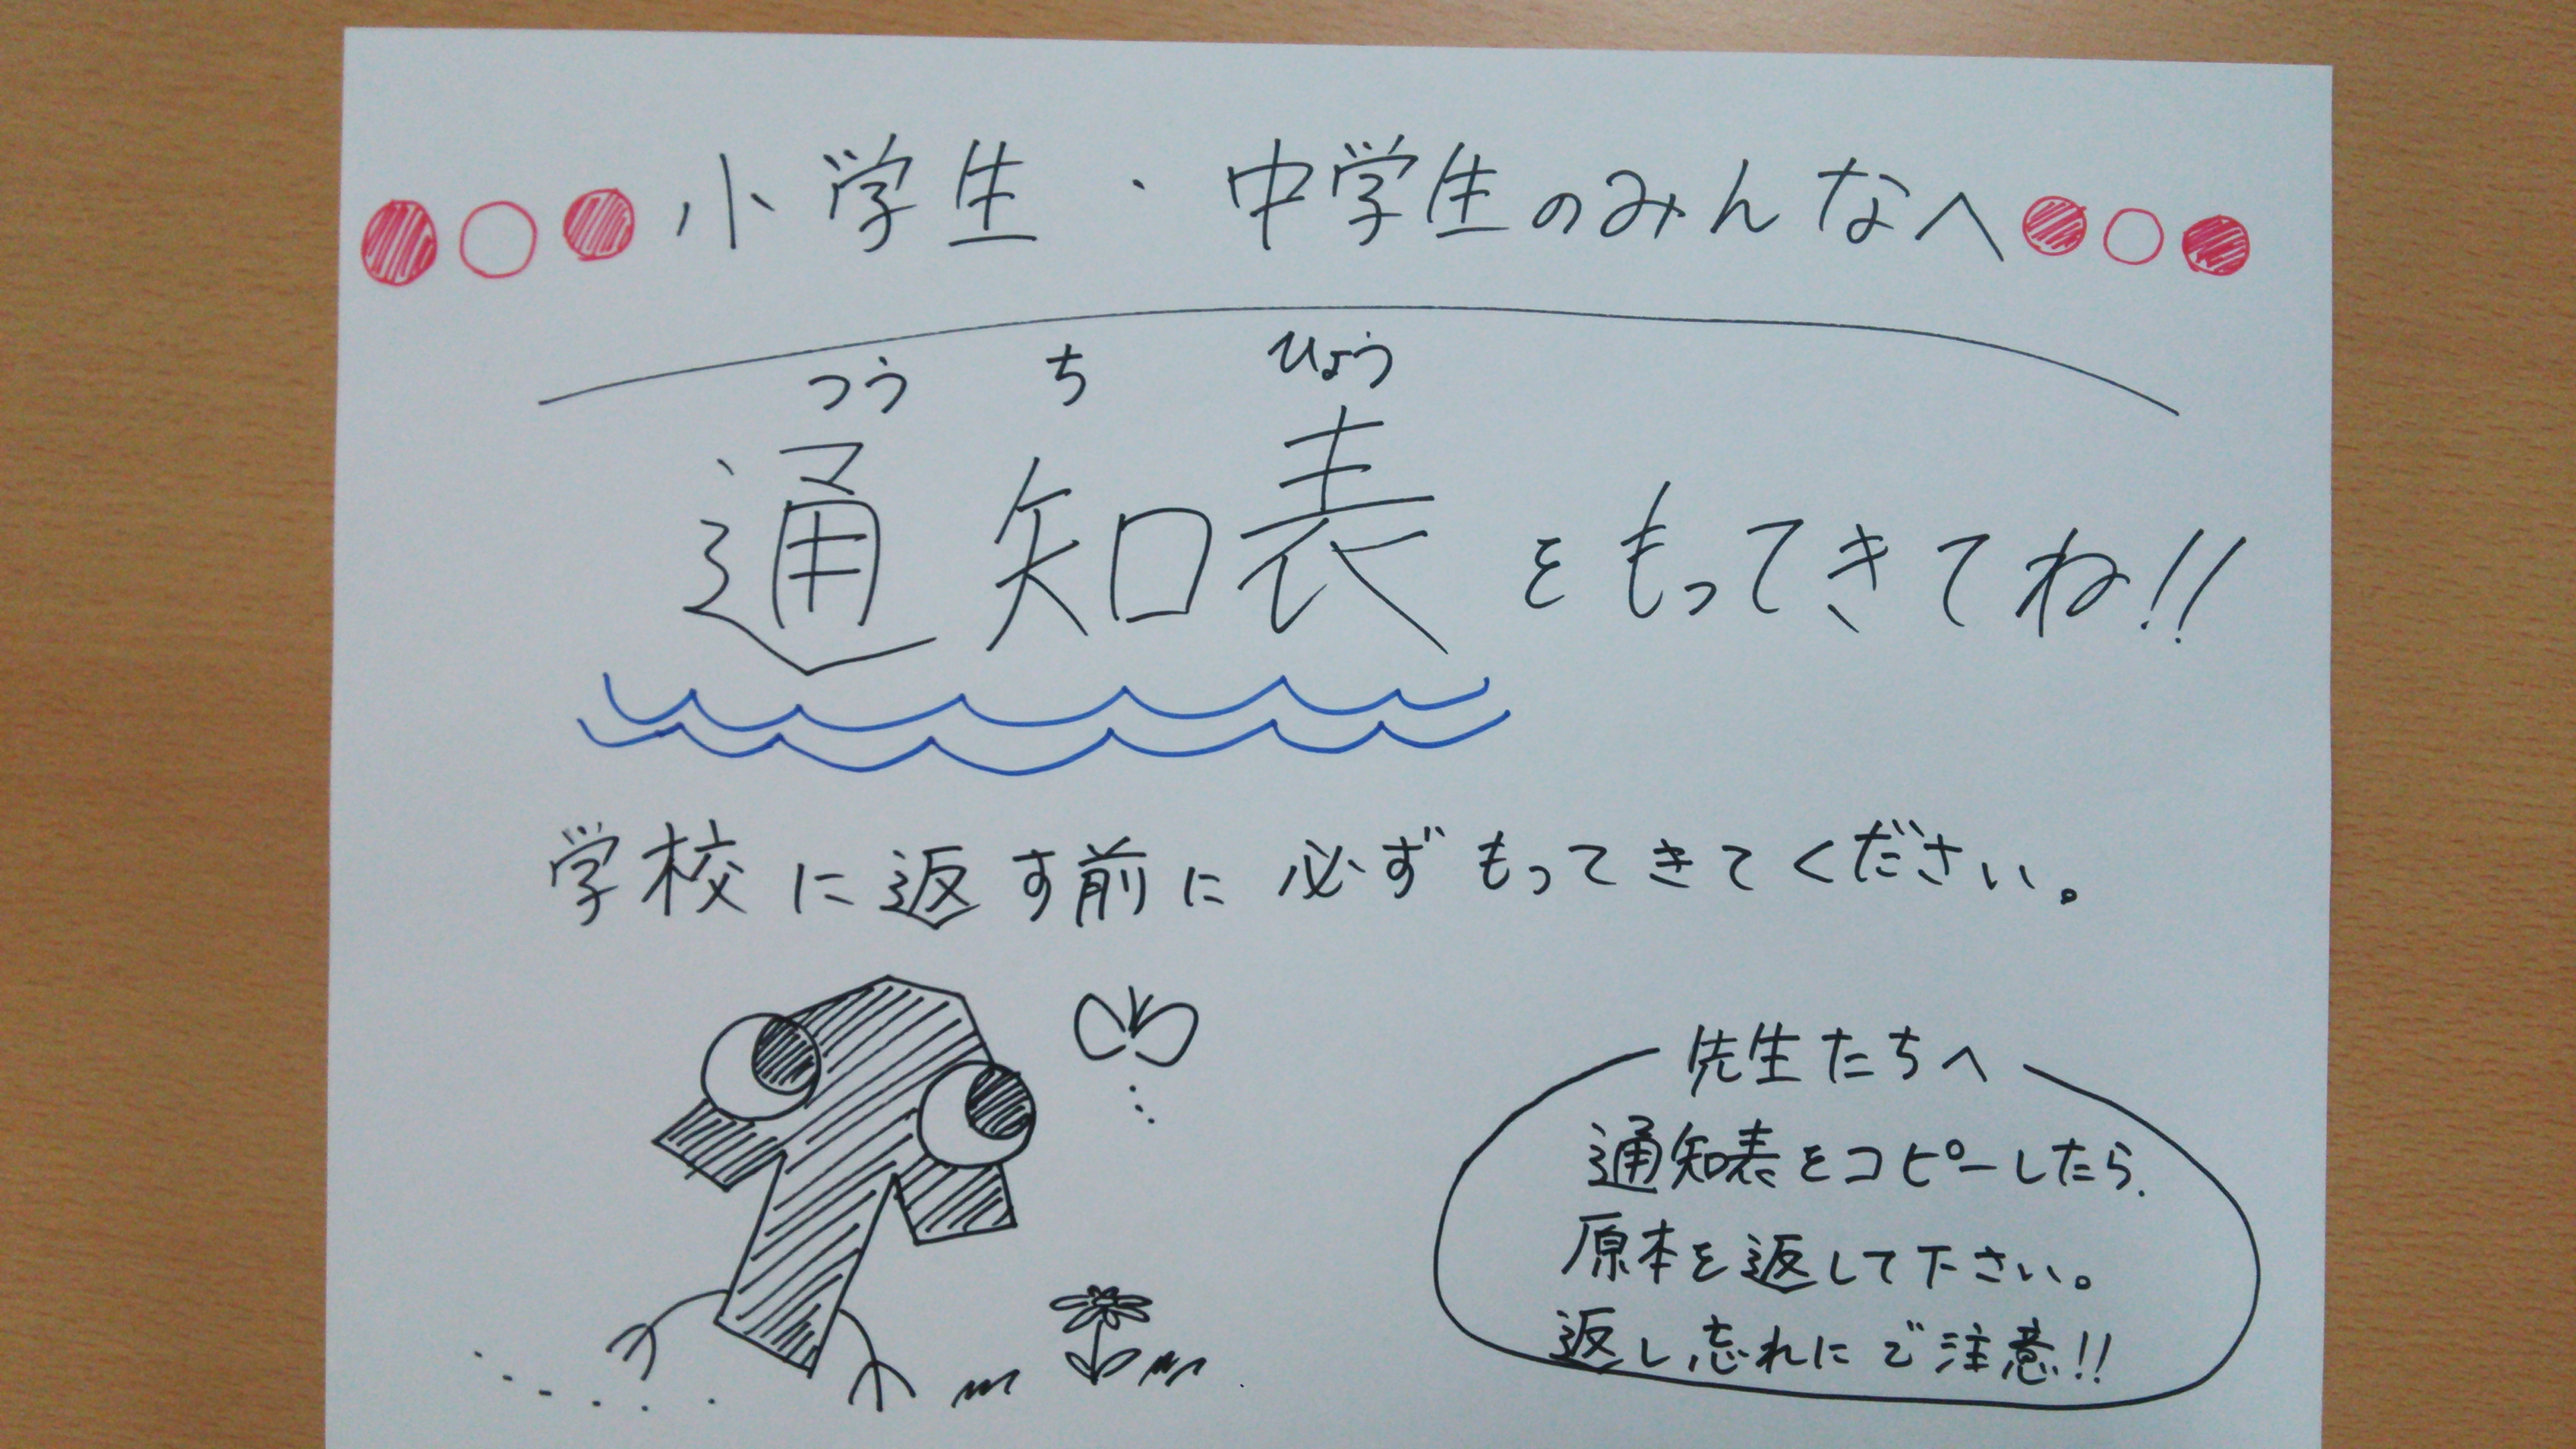 小学生・中学生のみんなへ
つうちひょう
通知表をもってきてね!!
学校に返す前に必ずもってきてください。
先生たちへ
通知表をコピーしたら、
原本を返して下さい。
返し忘れにご注意!!